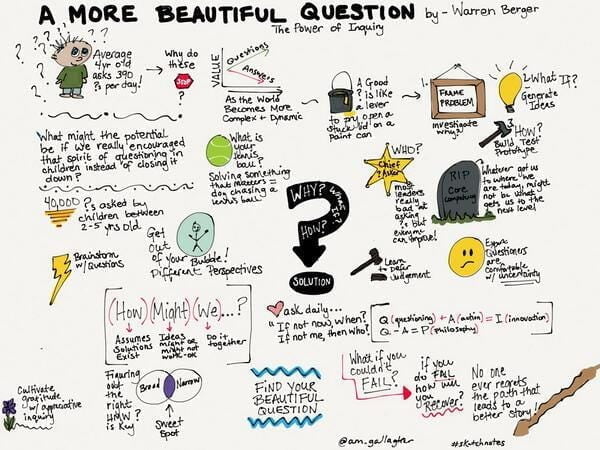 A MORE BEAUTIFUL QUESTION by - Warren Berger
The Power of Inquiry
Average
4yr old
asks 390
?s per day!
Why do
these
STOP
VALUE
Questions
Answers
As the World
Becomes More
Complex + Dynamic
A Good
? is like
a lever
to pry open a
stuck lid on a
paint can
1.
FRAME
PROBLEM
investigate
2. What If?
Generate
Ideas
3. How?
Build, Test
Prototype
What might the potential
be if we really encouraged
that spirit of questioning in
children instead of closing it
down?
What is
your
tennis
ball?
Solving something
that matters =
dog chasing a
tennis ball
WHO?
Chief
? Asker
most
leaders
really
bad at
asking
?s but
everyone
can improve!
RIP
Core
Whatever got us
to where we
are today, might
not be what
gets us to the
next level
40,000 ?s asked by
children between
2-5 yrs old
Get
out
of your Bubble!
Different Perspectives
Brainstorm
w/ Questions
WHY?
WHAT IF?
HOW?
SOLUTION
Learn
to Defer
Judgement
Expert
Questioners
are
comfortable
w/ uncertainty
(How) (Might) (We)...?
Assumes
Solutions
Exist
Ideas
might or
might not
work-OK
Do it
together
ask daily...
"If not now, when?
If not me, then who?"
Q (questioning) + A (action) = I (innovation)
Q - A = P (Philosophy)
Cultivate
gratitude
w/ appreciative
inquiry
Figuring
out
the
right
HMW?
is Key
Broad
Narrow
Sweet
Spot
FIND YOUR
BEAUTIFUL
QUESTION
What if you
couldn't
FAIL?
if you
do FAIL
how will
you
Recover?
No one
ever regrets
the path that
leads to a
better story!
@am_gallagher
#sketchnotes